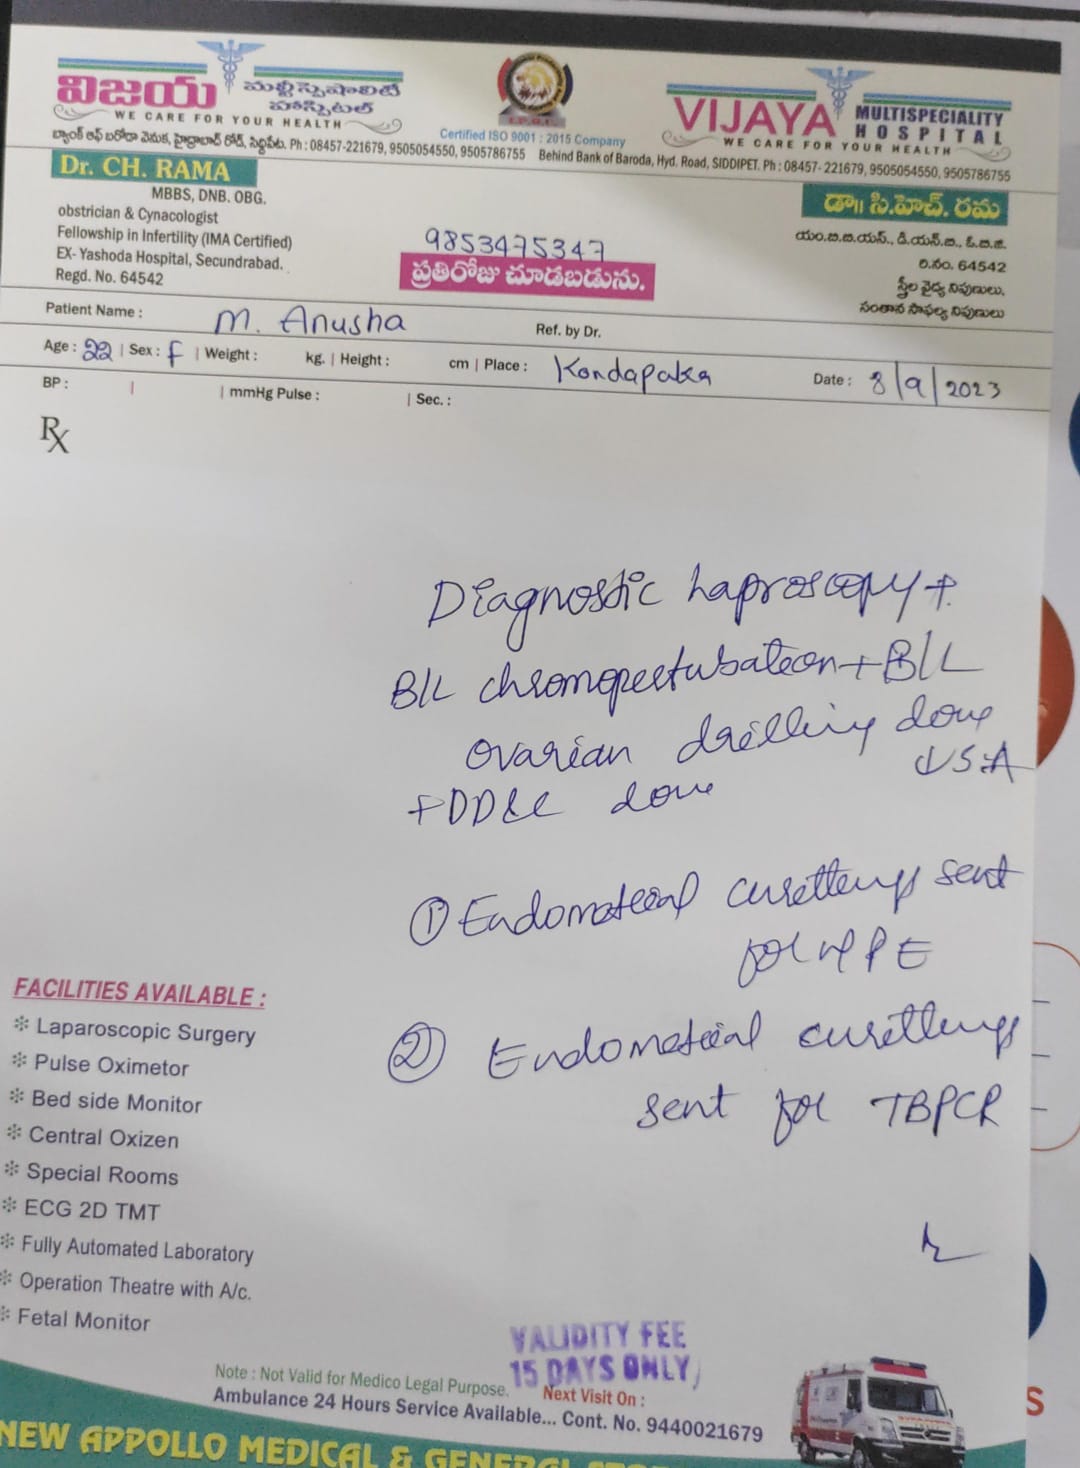 విజయ మల్టీస్పెషాలిటీ హాస్పిటల్
WE CARE FOR YOUR HEALTH
బ్యాంక్ ఆఫ్ బరోడా వెనుక, హైద్రాబాద్ రోడ్, సిద్దిపేట. Ph : 08457-221679, 9505054550, 9505786755
I.P.G.I.
Certified ISO 9001 : 2015 Company
VIJAYA MULTISPECIALITY HOSPITAL
WE CARE FOR YOUR HEALTH
Behind Bank of Baroda, Hyd. Road, SIDDIPET. Ph : 08457- 221679, 9505054550, 9505786755
Dr. CH. RAMA
MBBS, DNB. OBG.
obstrician & Cynacologist
Fellowship in Infertility (IMA Certified)
EX- Yashoda Hospital, Secundrabad.
Regd. No. 64542
9853475347
ప్రతిరోజు చూడబడును.
డా॥ సి.హెచ్. రమ
యం.బి.బి.యస్., డి.యన్.బి., ఓ.బి.జి.
రి.నం. 64542
స్త్రీల వైద్య నిపుణులు.
సంతాన సాఫల్య నిపుణులు
Patient Name : M. Anusha Ref. by Dr.
Age : 22 | Sex : F | Weight : kg. | Height : cm | Place : Kondapaka Date : 8/9/2023
BP : | | mmHg Pulse : | Sec. :
Rx
Diagnostic haproscopy +
B/L chromopertubation + B/L
ovarian drilling done
↓S.A
+ DD&C done
① Endometrial curettings sent
for HPE
② Endometrial curettings
sent for TBPCR
FACILITIES AVAILABLE :
❇ Laparoscopic Surgery
❇ Pulse Oximetor
❇ Bed side Monitor
❇ Central Oxizen
❇ Special Rooms
❇ ECG 2D TMT
❇ Fully Automated Laboratory
❇ Operation Theatre with A/c.
❇ Fetal Monitor
VALIDITY FEE
15 DAYS ONLY
Note : Not Valid for Medico Legal Purpose. Next Visit On :
Ambulance 24 Hours Service Available... Cont. No. 9440021679
NEW APPOLLO MEDICAL & GENERAL